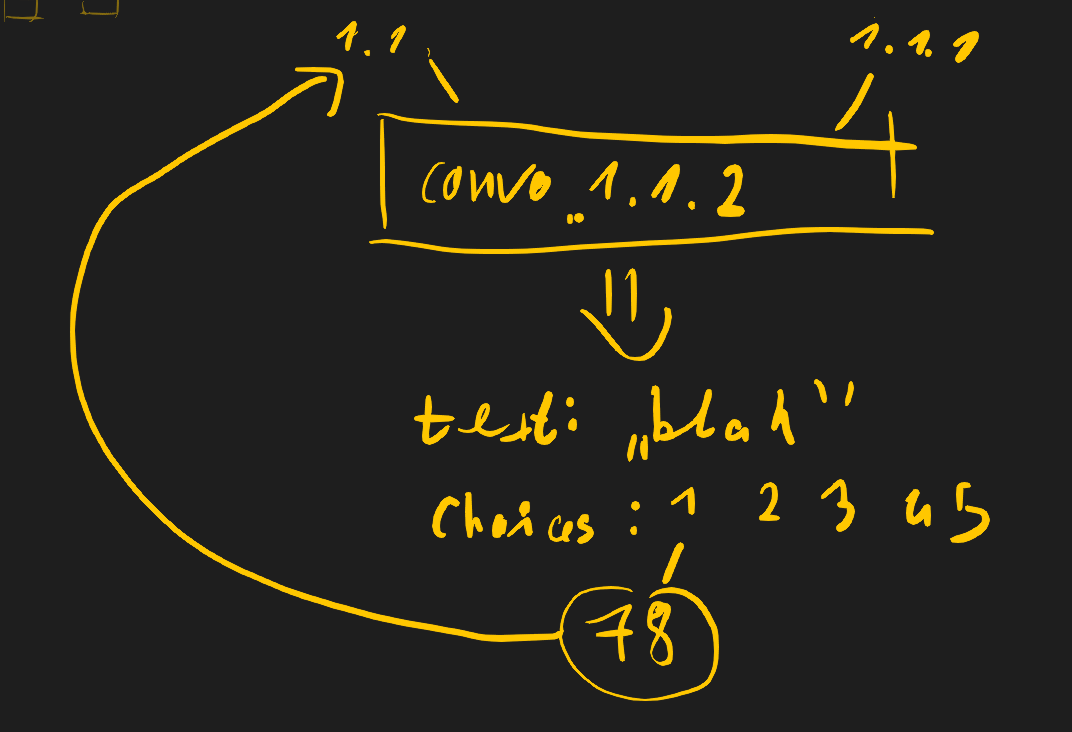 1.1
1.1.1
convo „1.1.2
text: „blah“
Choices: 1 2 3 4 5
78